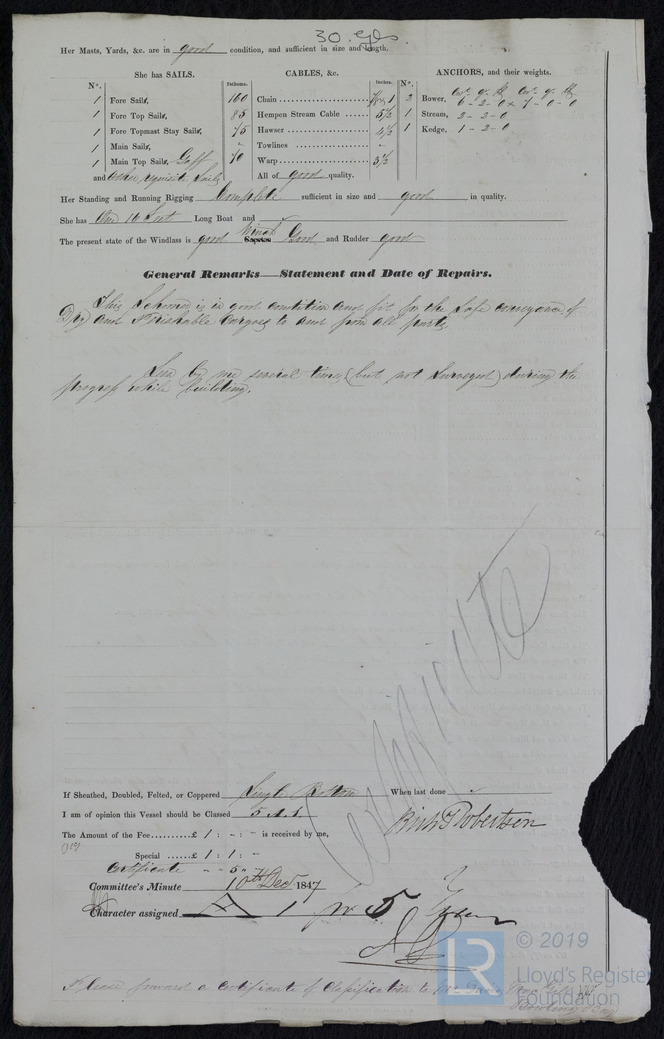 30.
Her Masts, Yards, &c. are in good condition, and sufficient in size and length.
She has SAILS.
CABLES, &c.
ANCHORS, and their weights.
N°. Fathoms. Inches. N°.
1 Fore Sails, 160 Chain 1 2 Bower, 6 - 2 - 0 x 7 - 0 - 0
1 Fore Top Sails, 85 Hempen Stream Cable 5½ 1 Stream, 2 - 2 - 0
1 Fore Topmast Stay Sails, 75 Hawser 4½ 1 Kedge, 1 - 2 - 0
1 Main Sails, - Towlines -
1 Main Top Sails, Gaff 70 Warp 3½
and other requisite Sails All of good quality.
Her Standing and Running Rigging Complete sufficient in size and good in quality.
She has One 16 Feet Long Boat and
The present state of the Windlass is good Winch Capstan Good and Rudder good
General Remarks—Statement and Date of Repairs.
This Schooner is in good condition and fit for the safe conveyance of
Dry and Perishable Cargoes to and from all parts
Seen by me several times (but not Surveyed) during the
progress while building.
Certificate
If Sheathed, Doubled, Felted, or Coppered Single Bottom When last done
I am of opinion this Vessel should be Classed 5 A 1 Robertson
The Amount of the Fee £ 1 : - : - is received by me,
Special £ 1 : 1 : -
Certificate - - 5 -
Committee's Minute 10th Decr 1847
Character assigned A 1 for 5 Years
Please forward a Certificate of Classification to Mr
Bowling Bay
LR © 2019
Lloyd's Register
Foundation